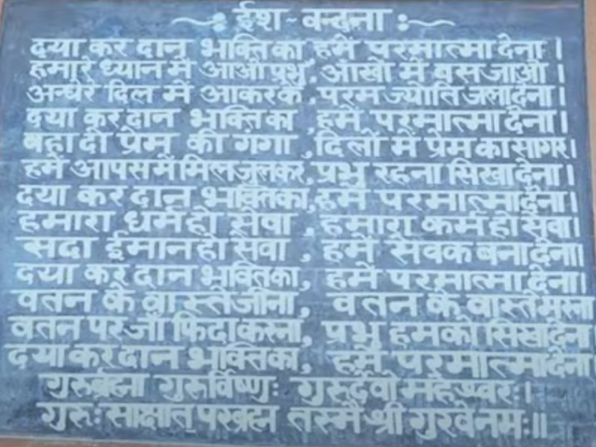 ईश - वन्दना
दया कर दान भक्ति का हमें परमात्मा देना ।
हमारे ध्यान में आओ प्रभु, आँखों में बस जाओ ।
अन्धेरे दिल में आकरके, परम ज्योति जला देना ।
दया कर दान भक्ति का, हमें परमात्मा देना ।
बहा दो प्रेम की गंगा, दिलों में प्रेम का सागर ।
हमें आपस में मिलजुलकर, प्रभु रहना सिखा देना ।
दया कर दान भक्ति का, हमें परमात्मा देना ।
हमारा धर्म हो सेवा, हमारा कर्म हो सेवा ।
सदा ईमान हो सेवा, हमें सेवक बना देना ।
दया कर दान भक्ति का, हमें परमात्मा देना ।
वतन के वास्ते जीना, वतन के वास्ते मरना
वतन पर जाँ फिदा करना, प्रभु हमको सिखा देना
दया कर दान भक्ति का, हमें परमात्मा देना
गुरुर्ब्रह्मा गुरुर्विष्णुः गुरुर्देवो महेश्वरः ।
गुरुः साक्षात् परब्रह्म तस्मै श्री गुरवे नमः ॥